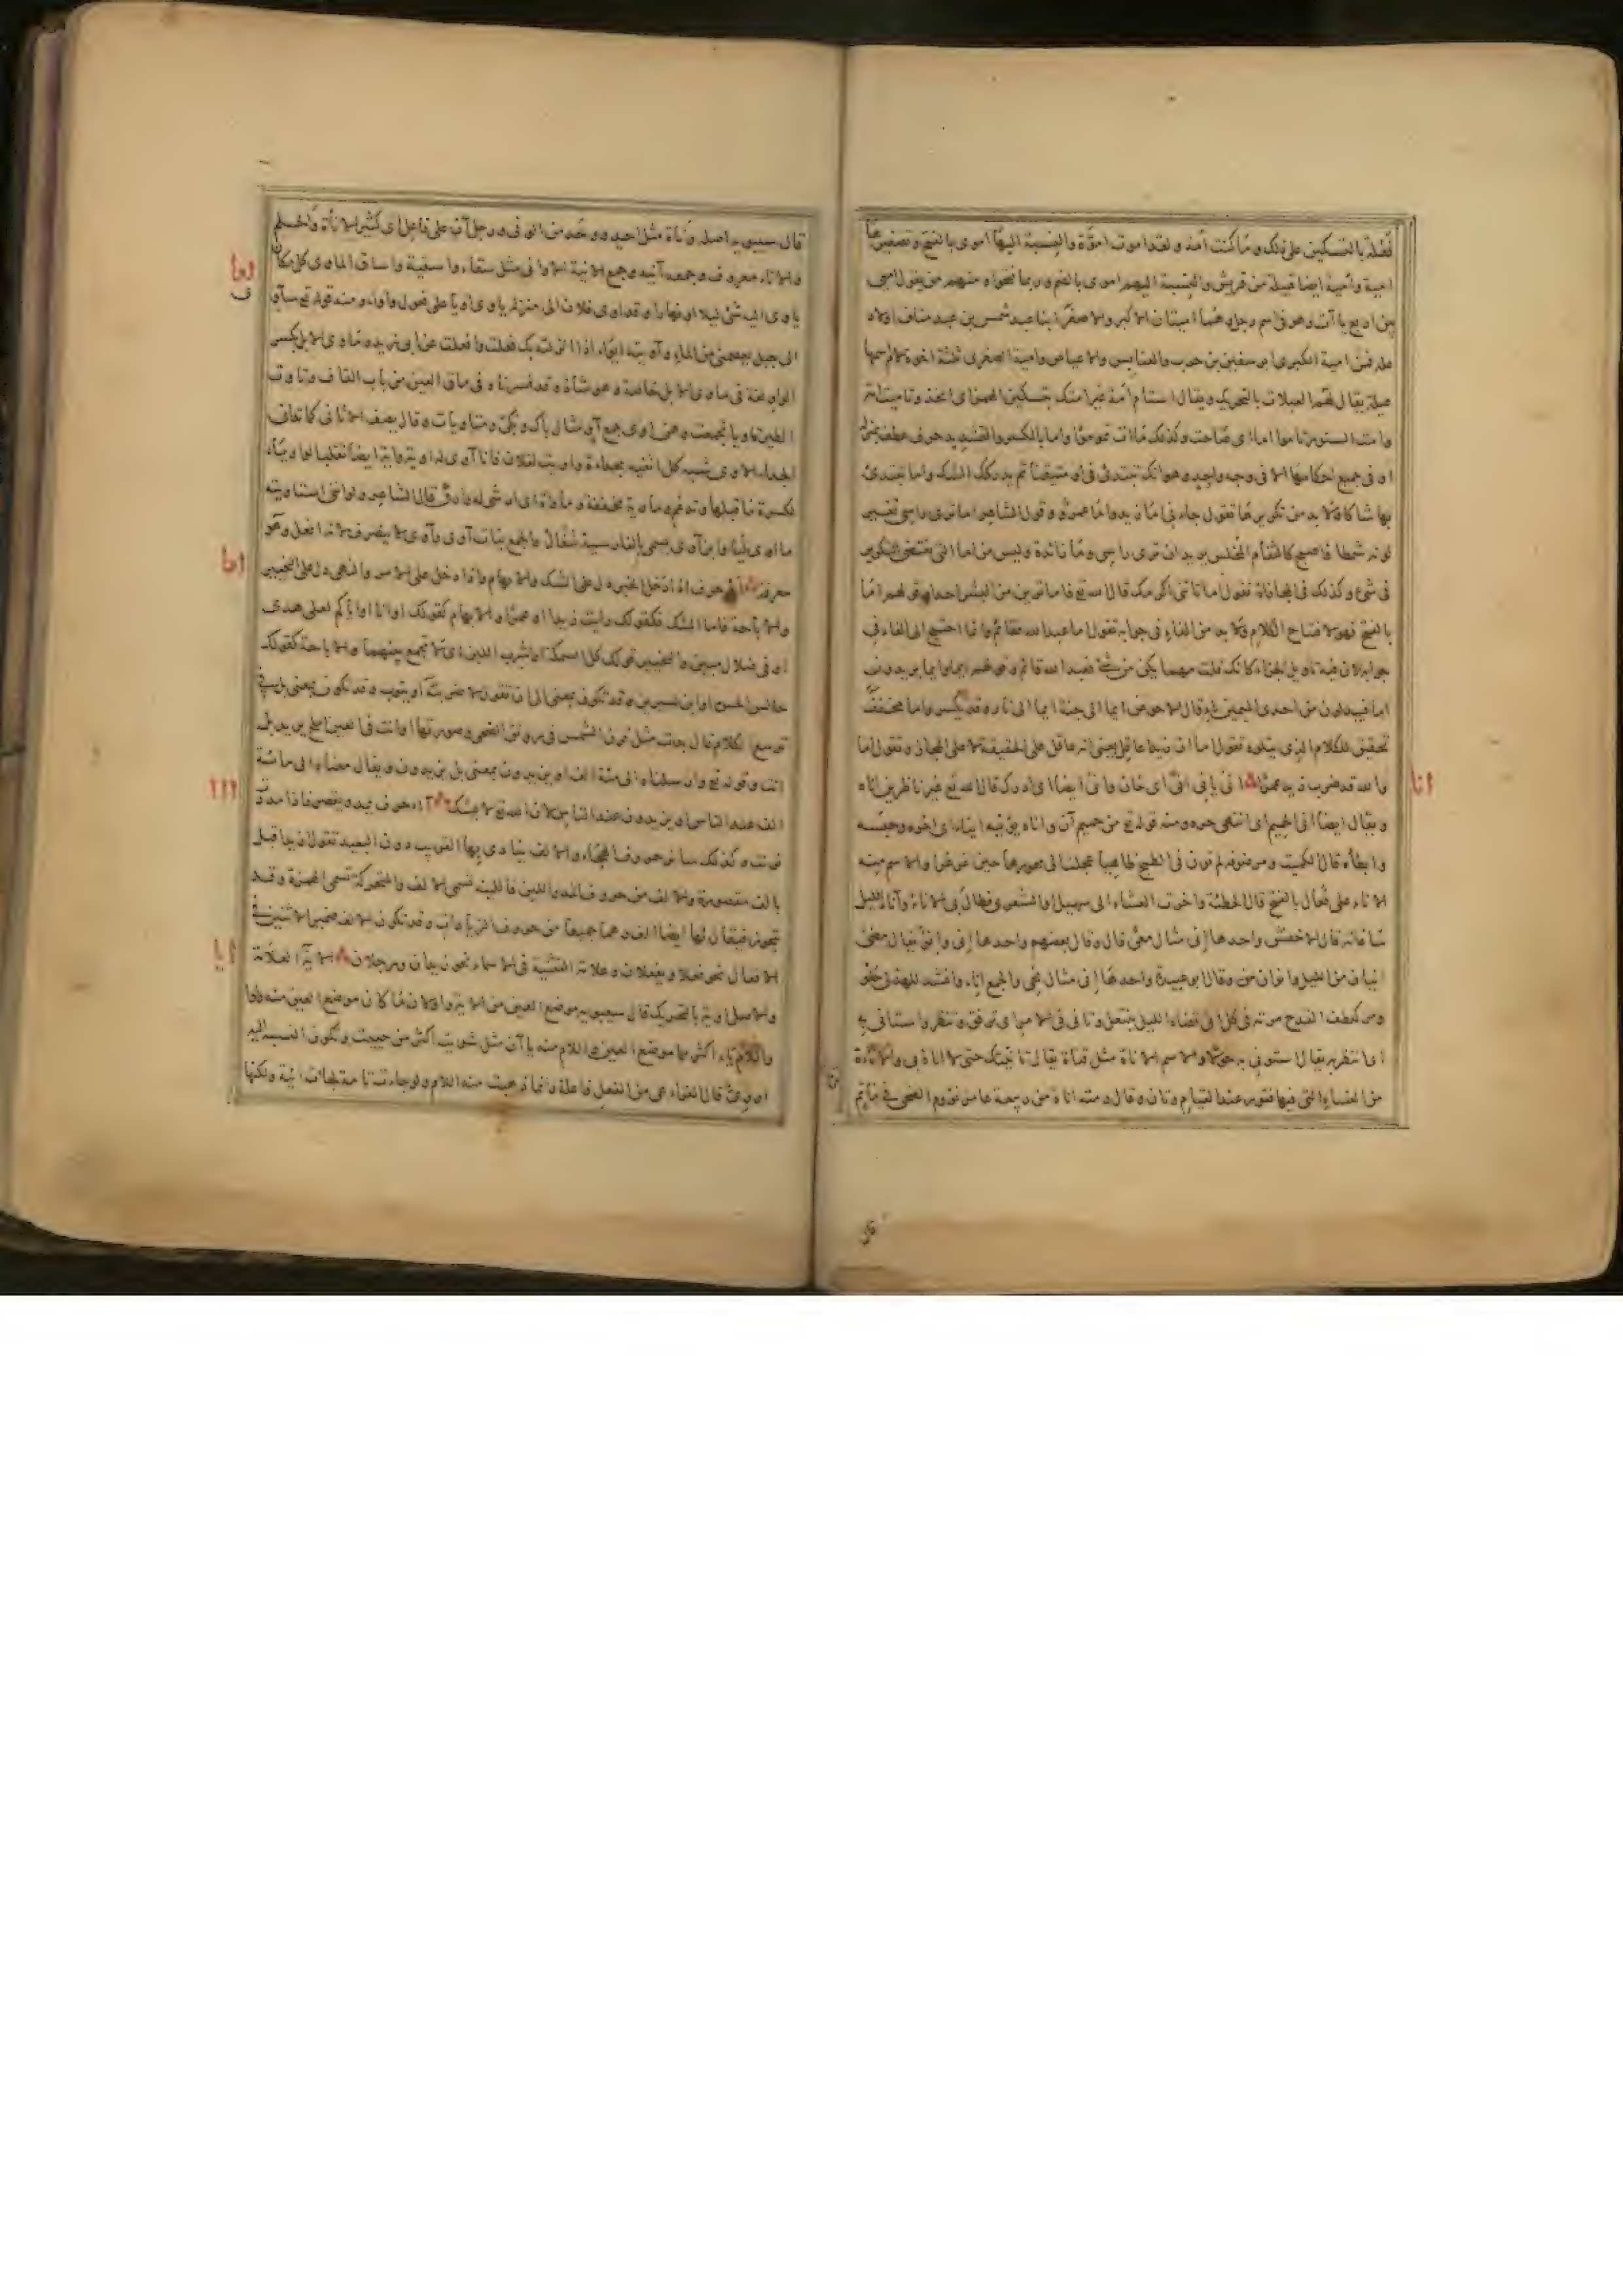 فعلة بالتسكين على ذلك وما كنت أمة ولقد اموت اموّة والنسبة اليها اموى بالفتح وتصغيرها
امية وأمية ايضا قبيلة من قريش والنسبة اليهم اموى بالضم وربما فتحوا ومنهم من يقول اميى
وهو فى اسم رجل وهما أميتان الاكبر والاصغر ابنا عبد شمس بن عبد مناف اولاد
علة فمن امية الكبرى ابو سفين بن حرب والعنابس والاعياص وامية الصغرى ثلثة اخوة لام اسمها
عبلة يقال لهم العبلات بالتحريك ويقال استام أمة غير امتك بتسكين الهمزة اى اتخذ وتاميت امة
وامت السنور تاموا اماء اى صاحت وكذلك ماءت تموء مواء واما بالكسر والتشديد حرف عطف بمنزلة
او فى جميع احكامها الا فى وجه واحد وهو انك تبتدئ فى او متيقنا ثم يدركك الشك واما تبتدئ
بها شاكا ولا بد من تكريرها تقول جاءنى اما زيد واما عمرو وقول الشاعر اما ترى راسى تغير
لونه شمطا فاصبح كالثغام المخلس يريد ان ترى راسى وما زائدة وليس من اما التى تقتضى التكرير
فى شئ وكذلك فى المجازاة تقول اما تاتنى اكرمك قال الله تع فاما ترين من البشر احدا وقولهم امّا
بالفتح فهو لافتتاح الكلام ولا بد من الفاء فى جوابه تقول اما عبد الله فقائم وانما احتيج الى الفاء فى
جوابه لان فيه تاويل الجزاء كانك قلت مهما يكن من شئ فعبد الله قائم وقولهم ايما وايما يريدون
اما فيبدلون من احدى الميمين ياء قال الاحوص ايما الى جنة ايما الى نار وقد يكسر واما مخفف
تحقيق للكلام الذى يتلوه تقول اما ان زيدا عاقل يعنى انه عاقل على الحقيقة لا على المجاز وتقول اما
والله قد ضرب زيد عمرا انى يانى انى اى حان وانى ايضا اى ادرك قال الله تع غير ناظرين اناه
ويقال ايضا انى الحميم اى انتهى حره ومنه قوله تع من حميم آن واناه يؤنيه ايناء اى اخره وحبسه
وابطاه قال الكميت ومرضوفة لم تون فى الطبخ طاهيا عجلت الى محورها حين غرغرا والاسم منه
الاناء على فعال بالفتح قال الحطيئة واخرت العشاء الى سهيل او الشعرى فطال بى الاناء وآناء الليل
ساعاته قال الاخفش واحدها إنى مثال معى قال وقال بعضهم واحدها إنى وانو يقال مضى
انيان من الليل وانوان منه وقال ابو عبيدة واحدها إنى مثال نحى والجمع آناء وانشد للهذلى حلو
ومر كعطف القدح مرته فى كل انى قضاه الليل ينتعل وتانى فى الامر اى ترفق وتنظر واستانى به
اى انتظر به يقال استونى به حولا والاسم الاناة مثل قناة يقال تانيتك حتى لا اناة بى والاناة
من النساء التى فيها فتور عند القيام وتان وقال رمته اناة من ربيعة عامر نؤوم الضحى فى ماتم
انا
قال سيبويه اصله وناة مثل احد ووحد من الونى ورجل آن على فاعل اى كثير الاناة والحلم
والاناء معروف وجمعه آنية وجمع الآنية الاوانى مثل سقاء واسقية واساق الماوى كل مكان
ياوى اليه شئ ليلا او نهارا وقد اوى فلان الى منزله ياوى اويا على فعول واواء ومنه قوله تع سآوى
الى جبل يعصمنى من الماء وآويته ايواء اذا انزلته بك فعلت وافعلت عن ابى زيد وماوى الابل بكسر
الواو لغة فى ماوى الابل خاصة وهو شاذ وقد فسرناه فى ماقى العين من باب القاف وتاوت
الطير تاويا تجمعت وهن اوى جمع آو مثال باك وبكى ومتاويات وقال يصف الاثافى كما تدانى
الحداء الاوى شبه كل اثفية بحداة واويت لفلان فانا آوى له اوية وماية ايضا تقلب الواو ياء
لكسرة ما قبلها وتدغم وماوية مخففة وماواة اى ارثى له وارق قال الشاعر ولو اننى استاويته
ما اوى ليا وابن آوى يسمى بالفارسية شغال والجمع بنات آوى وآوى لا ينصرف لانه افعل وهو
معرفة او حرف اذا دخل الخبر دل على الشك والابهام واذا دخل على الامر والنهى دل على التخيير
والاباحة فاما الشك فكقولك رايت زيدا او عمرا والابهام كقوله وانا او اياكم لعلى هدى
او فى ضلال مبين والتخيير قولك كل السمك او اشرب اللبن اى لا تجمع بينهما والاباحة كقولك
جالس الحسن او ابن سيرين وقد تكون بمعنى الى ان تقول لاضربنه او يتوب وقد تكون بمعنى بل فى
توسع الكلام قال بدت مثل قرن الشمس فى رونق الضحى وصورتها او انت فى العين املح يريد بل
انت وقوله تع وارسلناه الى مئة الف او يزيدون بمعنى بل يزيدون ويقال معناه الى مائة
الف عند الناس او يزيدون عند الناس لان الله تع لا يشك آ حرف يمد ويقصر فاذا مددت
نونت وكذلك سائر حروف الهجاء والالف ينادى بها القريب دون البعيد تقول ازيد اقبل
بالف مقصورة والالف من حروف المد واللين فاللينة تسمى الالف والمتحركة تسمى الهمزة وقد
يتجوز فيقال لها ايضا الف وهما جميعا من حروف الزيادات وقد تكون الالف ضمير الاثنين فى
الافعال نحو فعلا ويفعلان وعلامة التثنية فى الاسماء نحو زيدان ورجلان الآية العلامة
والاصل اوية بالتحريك قال سيبويه موضع العين من الآية واو لان ما كان موضع العين منه واوا
واللام ياء اكثر مما موضع العين واللام منه ياآن مثل شويت اكثر من حييت وتكون النسبة اليه
اووى قال الفراء هى من الفعل فاعلة وانما ذهبت منه اللام ولو جاءت تامة لجاءت آيية ولكنها
اوا
ا و
ااا
ايا